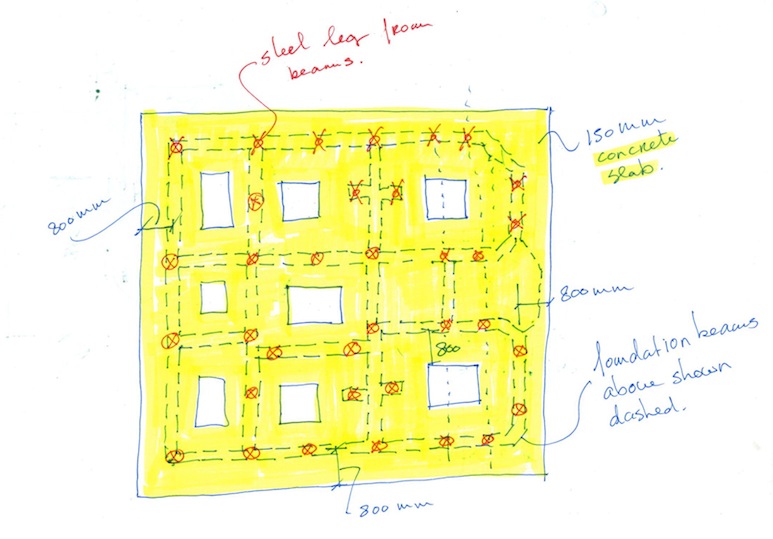 steel leg from
beams.
150mm
concrete
slab.
800mm
800mm
800
foundation beams
above shown
dashed.
800mm